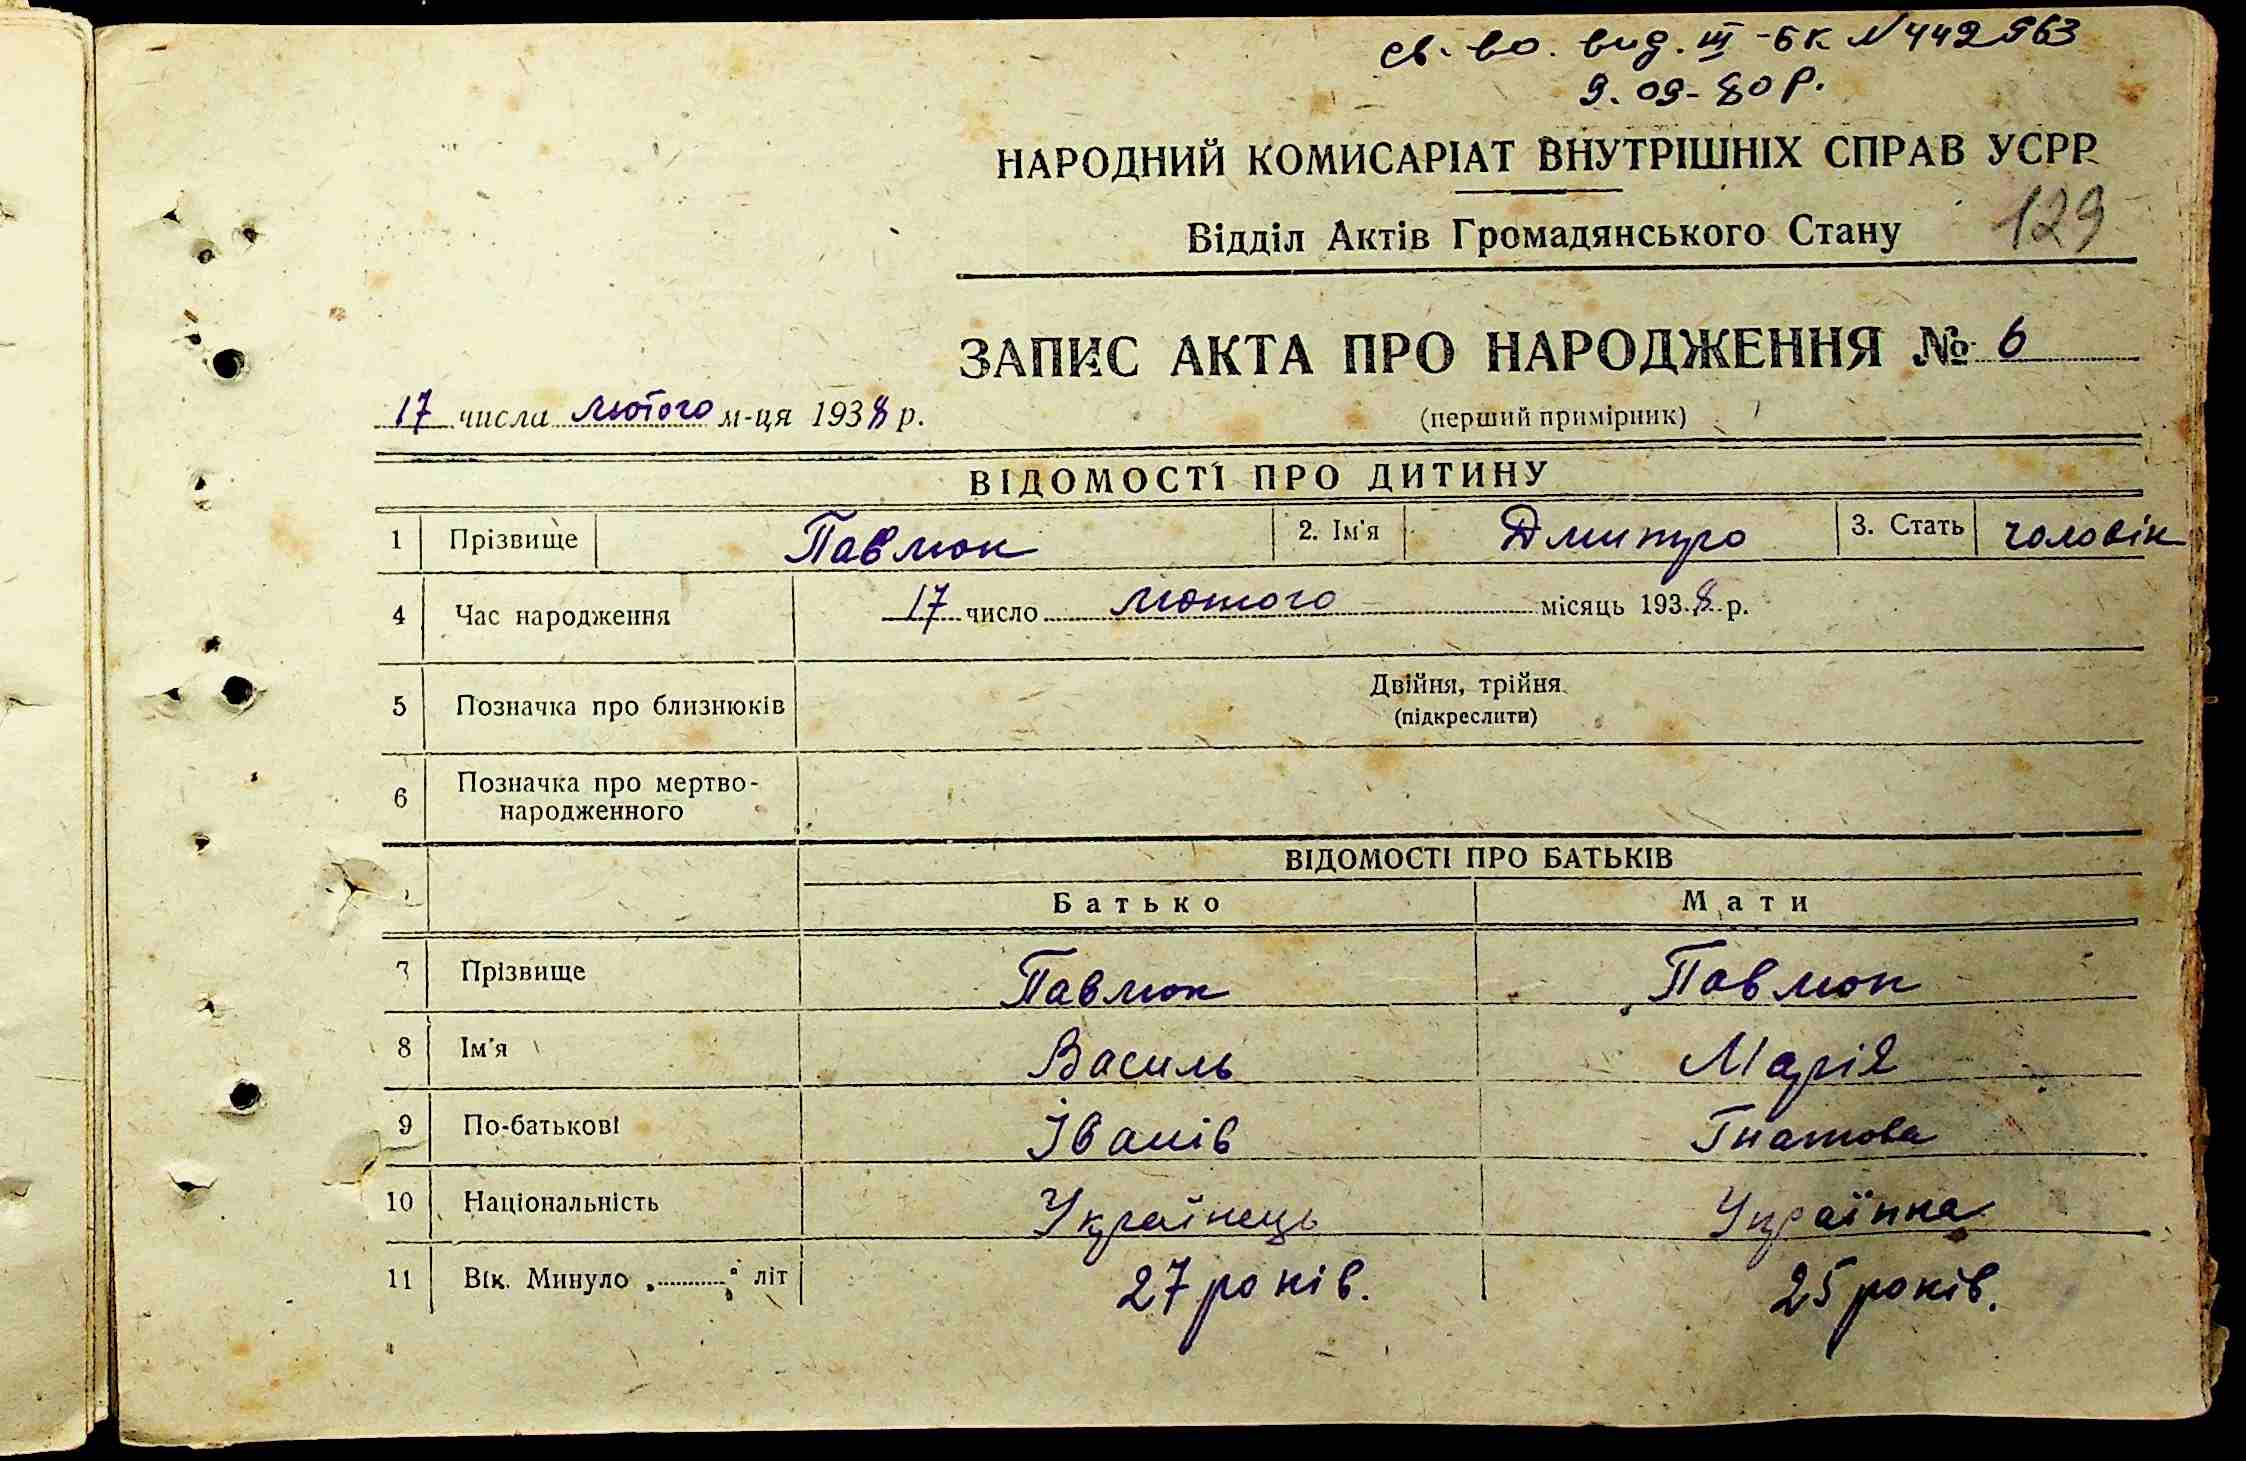 св-во. вид. III-БК N 442563
9.09-80р.
НАРОДНИЙ КОМИСАРІАТ ВНУТРІШНІХ СПРАВ УСРР
129
Відділ Актів Громадянського Стану
ЗАПИС АКТА ПРО НАРОДЖЕННЯ № 6
17 числа лютого м-ця 1938 р.
(перший примірник)
ВІДОМОСТІ ПРО ДИТИНУ
1 Прізвище Павлюк 2. Ім'я Дмитро 3. Стать чоловік
4 Час народження 17 число лютого місяць 1938 р.
5 Позначка про близнюків Двійня, трійня
(підкреслити)
6 Позначка про мертво-
народженного
ВІДОМОСТІ ПРО БАТЬКІВ
Батько Мати
7 Прізвище Павлюк Павлюк
8 Ім'я Василь Марія
9 По-батькові Іванів Гнатова
10 Національність Українець Українка
11 Вік. Минуло „..........“ літ 27 років. 25 років.